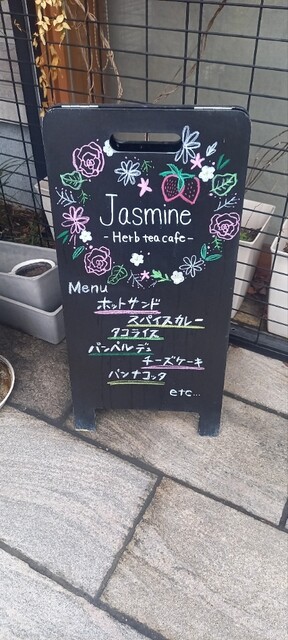 Jasmine
- Herb tea cafe -
Menu
ホットサンド
スパイスカレー
タコライス
パンペルデュ
チーズケーキ
パンナコッタ
etc...